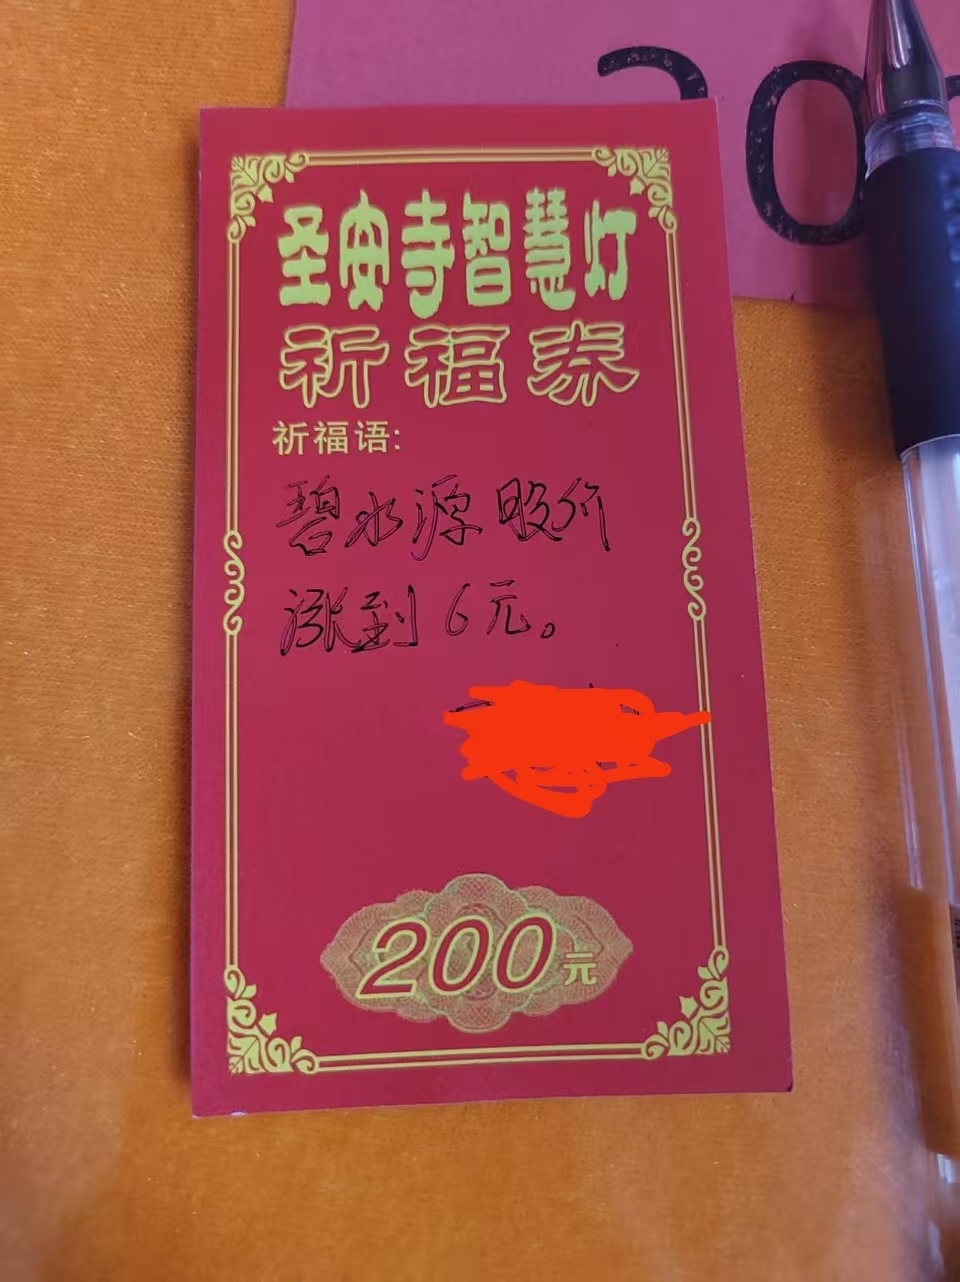 圣安寺智慧灯
祈福券
祈福语:
碧水源股价
涨到6元。
200元